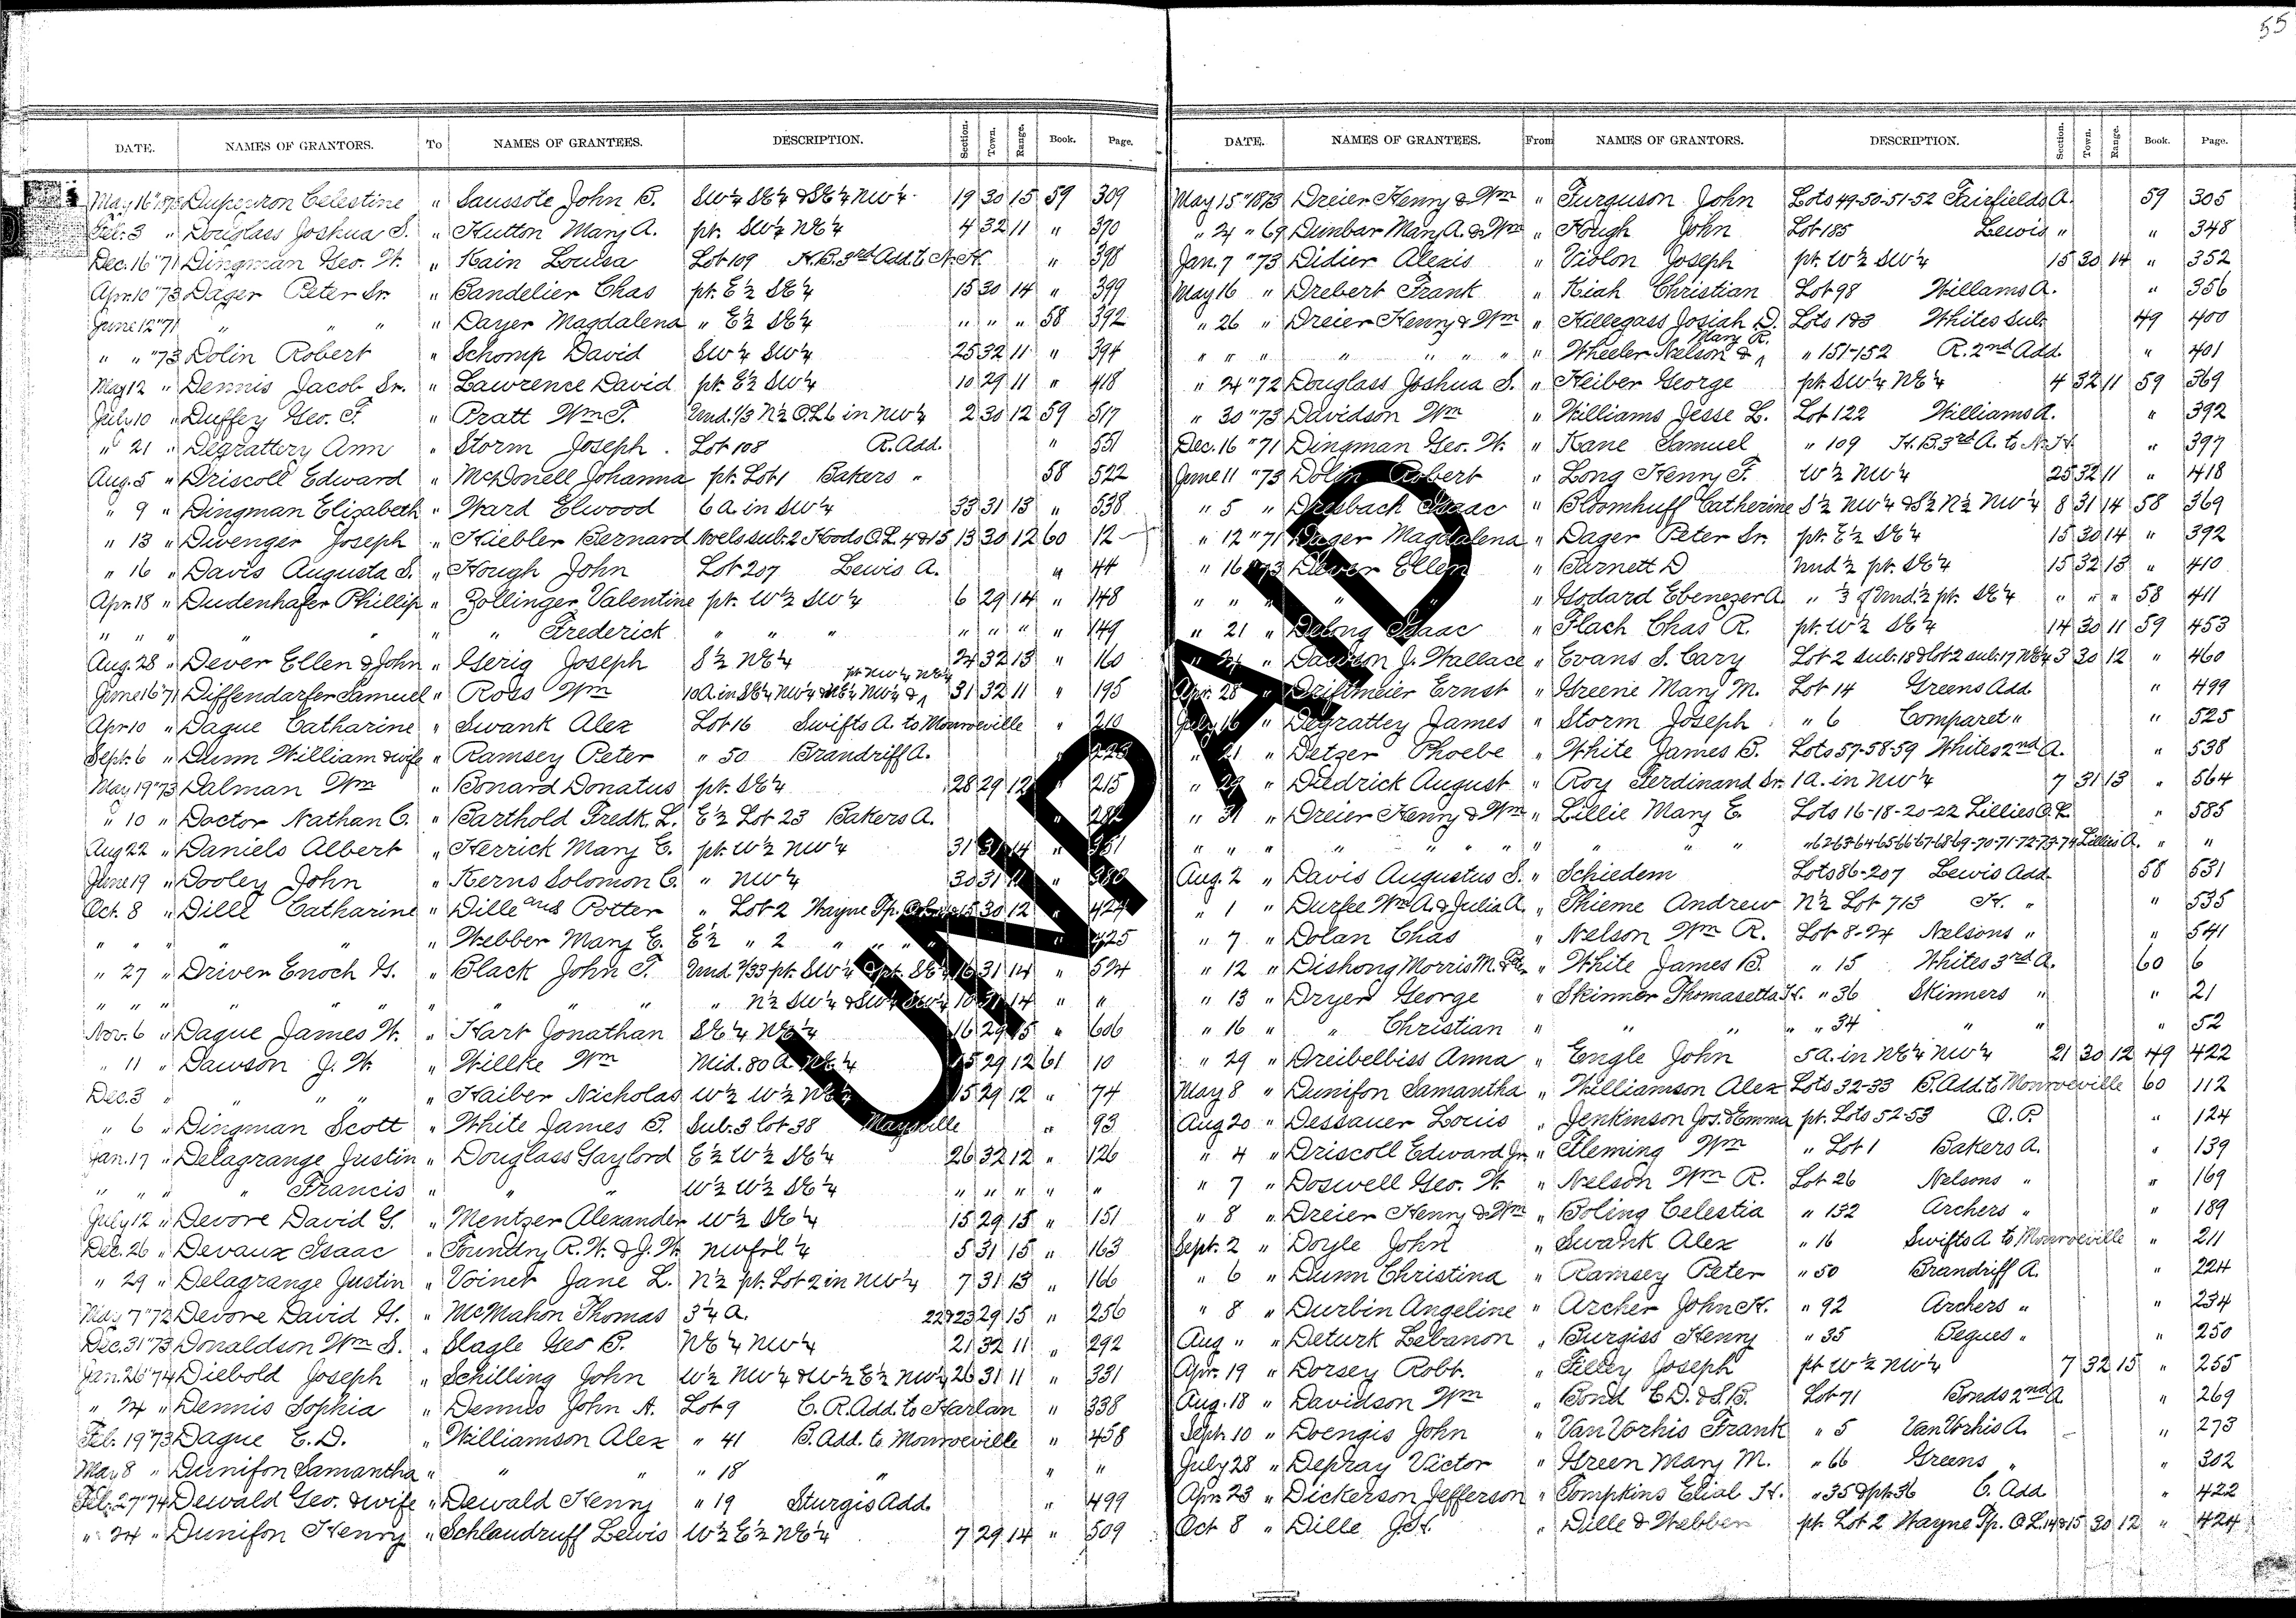 55
DATE. NAMES OF GRANTORS. To NAMES OF GRANTEES. DESCRIPTION. Section. Town. Range. Book. Page.
May 16 "1873 Duperron Celestine " Saussote John B. SW¼ SE¼ & SE¼ NW¼ 19 30 15 59 309
Feb. 3 " Douglass Joshua S. " Hutton Mary A. pt. SW¼ NE¼ 4 32 11 " 370
Dec. 16 "71 Dingman Geo. W. " Kain Louisa Lot 109 H.B. 3rd Add. to N.H. " 398
Apr. 10 "73 Dager Peter Sr. " Bandelier Chas pt. E½ SE¼ 15 30 14 " 399
June 12 "71 " " " " Dayer Magdalena " E½ SE¼ " " " 58 392
" " "73 Dolin Robert " Schomp David SW¼ SW¼ 25 32 11 " 394
May 12 " Dennis Jacob Sr. " Lawrence David pt. E½ SW¼ 10 29 11 " 418
July 10 " Duffey Geo. F. " Pratt Wm T. Und. 1/3 N½ O.L. 6 in NW¼ 2 30 12 59 517
" 21 " Degrattery Ann " Storm Joseph Lot 108 R. Add. " 551
Aug. 5 " Driscoll Edward " McDonell Johanna pt. Lot 1 Bakers " 58 522
" 9 " Dingman Elizabeth " Ward Elwood 6 A. in SW¼ 33 31 13 " 538
" 13 " Dwenger Joseph " Kiebler Bernard Noels sub. 2 Hoods O.L. 4 & 15 13 30 12 60 12
" 16 " Davis Augusta S. " Hough John Lot 207 Lewis A. " 44
Apr. 18 " Dudenhafer Phillip " Zollinger Valentine pt. W½ SW¼ 6 29 14 " 148
" " " " " " " Frederick " " " " " " " 149
Aug. 28 " Dever Ellen & John " Gerig Joseph S½ NE¼ 24 32 13 " 160
June 16 "71 Diffendarfer Samuel " Ross Wm 10 A. in SE¼ NW¼ & NE¼ NW¼ & pt. NW¼ NE¼ 31 32 11 " 195
Apr. 10 " Dague Catharine " Swank Alex Lot 16 Swifts A. to Monroeville " 210
Sept. 6 " Dunn William & wife " Ramsey Peter " 50 Brandriff A. " 223
May 19 "73 Dalman Wm " Bonard Donatus pt. SE¼ 28 29 12 " 215
" 10 " Doctor Nathan C. " Barthold Fredk. L. E½ Lot 23 Bakers A. " 282
Aug 22 " Daniels Albert " Herrick Mary E. pt. W½ NW¼ 31 31 14 " 351
June 19 " Dooley John " Kerns Solomon C. " NW¼ 30 31 11 " 380
Oct. 8 " Dille Catharine " Dille and Potter " Lot 2 Wayne Tp. 15 30 12 " 424
" " " " " " Webber Mary E. E½ " 2 " " " " " 425
" 27 " Driver Enoch G. " Black John F. Und. 7/33 pt. SW¼ & pt. SE¼ 16 31 14 " 524
" " " " " " " " " " " N½ SW¼ & SW¼ SW¼ 10 31 14 " "
Nov. 6 " Dague James W. " Hart Jonathan SE¼ NE¼ 16 29 15 " 606
" 11 " Dawson J. W. " Willke Wm Mid. 80 A. NE¼ 15 29 12 61 10
Dec. 3 " " " " Haiber Nicholas W½ W½ NE¼ 15 29 12 " 74
" 6 " Dingman Scott " White James B. Sub. 3 lot 38 Maysville " 93
Jan. 17 " Delagrange Justin " Douglass Gaylord E½ W½ SE¼ 26 32 12 " 126
" " " " Francis " " " W½ W½ SE¼ " " " " "
July 12 " Devore David G. " Mentzer Alexander W½ SE¼ 15 29 15 " 151
Dec. 26 " Devaux Isaac " Foundry R. W. & J. W. NW frl. ¼ 5 31 15 " 163
" 29 " Delagrange Justin " Voinet Jane L. N½ pt. Lot 2 in NW¼ 7 31 13 " 166
May 7 "72 Devore David G. " McMahon Thomas 3¼ A. 22 & 23 29 15 " 256
Dec. 31 "73 Donaldson Wm S. " Slagle Geo B. NE¼ NW¼ 21 32 11 " 292
Jan. 26 "74 Diebold Joseph " Schilling John W½ NW¼ & W½ E½ NW¼ 26 31 11 " 331
" 24 " Dennis Sophia " Dennis John A. Lot 9 C. R. Add. to Harlan " 338
Feb. 19 "73 Dague E. D. " Williamson Alex " 41 B. Add. to Monroeville " 458
May 8 " Dunifon Samantha " " " " 18 " " "
Feb. 27 "74 Dewald Geo. & wife " Dewald Henry " 19 Sturgis Add. " 499
" 24 " Dunifon Henry " Schlaudruff Lewis W½ E½ NE¼ 7 29 14 " 509
DATE. NAMES OF GRANTEES. From NAMES OF GRANTORS. DESCRIPTION. Section. Town. Range. Book. Page.
May 15 "1873 Dreier Henry & Wm " Furguson John Lots 49-50-51-52 Fairfields A. 59 305
" 24 " 69 Dunbar Mary A. & Wm " Hough John Lot 185 Lewis " " 348
Jan. 7 "73 Didier Alexis " Violon Joseph pt. W½ SW¼ 15 30 14 " 352
May 16 " Drebert Frank " Kiah Christian Lot 98 Willams A. " 356
" 26 " Dreier Henry & Wm " Hillegass Josiah D. Lots 1 & 3 Whites Sub. 49 400
" " " " " " " " Wheeler Nelson & Mary R. " " 151-152 R. 2nd Add. " 401
" 24 "72 Douglass Joshua S. " Heiber George pt. SW¼ NE¼ 4 32 11 59 369
" 30 "73 Davidson Wm " Williams Jesse L. Lot 122 Williams A. " 392
Dec. 16 "71 Dingman Geo. W. " Kane Samuel " 109 H.B. 3rd A. to N.H. " 397
June 11 "73 Dolin Robert " Long Henry F. W½ NW¼ 25 32 11 " 418
" 5 " Dresbach Isaac " Bloomhuff Catherine S½ NW¼ & S½ N½ NW¼ 8 31 14 58 369
" 12 "71 Dager Magdalena " Dager Peter Sr. pt. E½ SE¼ 15 30 14 " 392
" 16 "73 Dever Ellen " Barnett D Und ½ pt. SE¼ 15 32 13 " 410
" " " " " " Godard Ebenezer A. " ⅓ of Und. ½ pt. SE¼ " " " 58 411
" 21 " Delong Isaac " Flach Chas R. pt. W½ SE¼ 14 30 11 59 453
" 24 " Dawson J. Wallace " Evans S. Cary Lot 2 sub. 18 & lot 2 sub. 17 NE¼ 3 30 12 " 460
Apr. 28 " Driftmeier Ernst " Greene Mary M. Lot 14 Greens Add " 499
July 16 " Degrattey James " Storm Joseph " 6 Comparet " " 525
" 21 " Detzer Phoebe " White James B. Lots 57-58-59 Whites 2nd A. " 538
" 29 " Diedrick August " Roy Ferdinand Sr. 1 A. in NW¼ 7 31 13 " 564
" 31 " Dreier Henry & Wm " Lillie Mary E. Lots 16-18-20-22 Lillies O.L. " 585
" " " " " " " " " " " 62-63-64-65-66-67-68-69-70-71-72-73-74 Lillies A. " "
Aug. 2 " Davis Augustus S. " Schiedem Lots 86-207 Lewis Add. 58 531
" 1 " Durfee Wm A. & Julia A. " Thieme Andrew N½ Lot 713 H. " " 535
" 7 " Dolan Chas " Nelson Wm R. Lot 8-24 Nelsons " " 541
" 12 " Dishong Morris M. " White James B. " 15 Whites 3rd A. 60 6
" 13 " Dryer George " Skinner Thomasetta H. " 36 Skinners " " 21
" 16 " " Christian " " " " " 34 " " " 52
" 29 " Dreibelbiss Anna " Engle John 5 A. in NE¼ NW¼ 21 30 12 49 422
May 8 " Dunifon Samantha " Williamson Alex Lots 32-33 B. Add. to Monroeville 60 112
Aug 20 " Dessauer Louis " Jenkinson Jos. & Emma pt. Lots 52-53 O. P. " 124
" 4 " Driscoll Edward Jr. " Fleming Wm " Lot 1 Bakers A. " 139
" 7 " Doswell Geo. W. " Nelson Wm R. Lot 26 Nelsons " " 169
" 8 " Dreier Henry & Wm " Boling Celestia " 132 Archers " " 189
Sept. 2 " Doyle John " Swank Alex " 16 Swifts A to Monroeville " 211
" 6 " Dunn Christina " Ramsey Peter " 50 Brandriff A. " 224
" 8 " Durbin Angeline " Archer John H. " 92 Archers " " 234
Aug " " Deturk Lebanon " Burgiss Henry " 35 Begues " " 250
Apr. 19 " Dorsey Robt. " Filley Joseph pt W½ NW¼ 7 32 15 " 255
Aug. 18 " Davidson Wm " Bond C. D. & S. B. Lot 71 Bonds 2nd A " 269
Sept. 10 " Doengis John " Van Vorhis Frank " 5 Van Vorhis A. " 273
July 28 " Depray Victor " Green Mary M. " 66 Greens " " 302
Apr. 23 " Dickerson Jefferson " Tompkins Elial H. " 35 & pt. 36 C. Add " 422
Oct 8 " Dille J. H. " Dille & Webber pt. Lot 2 Wayne Tp. O.L. 14 & 15 30 12 " 424
UNPAID